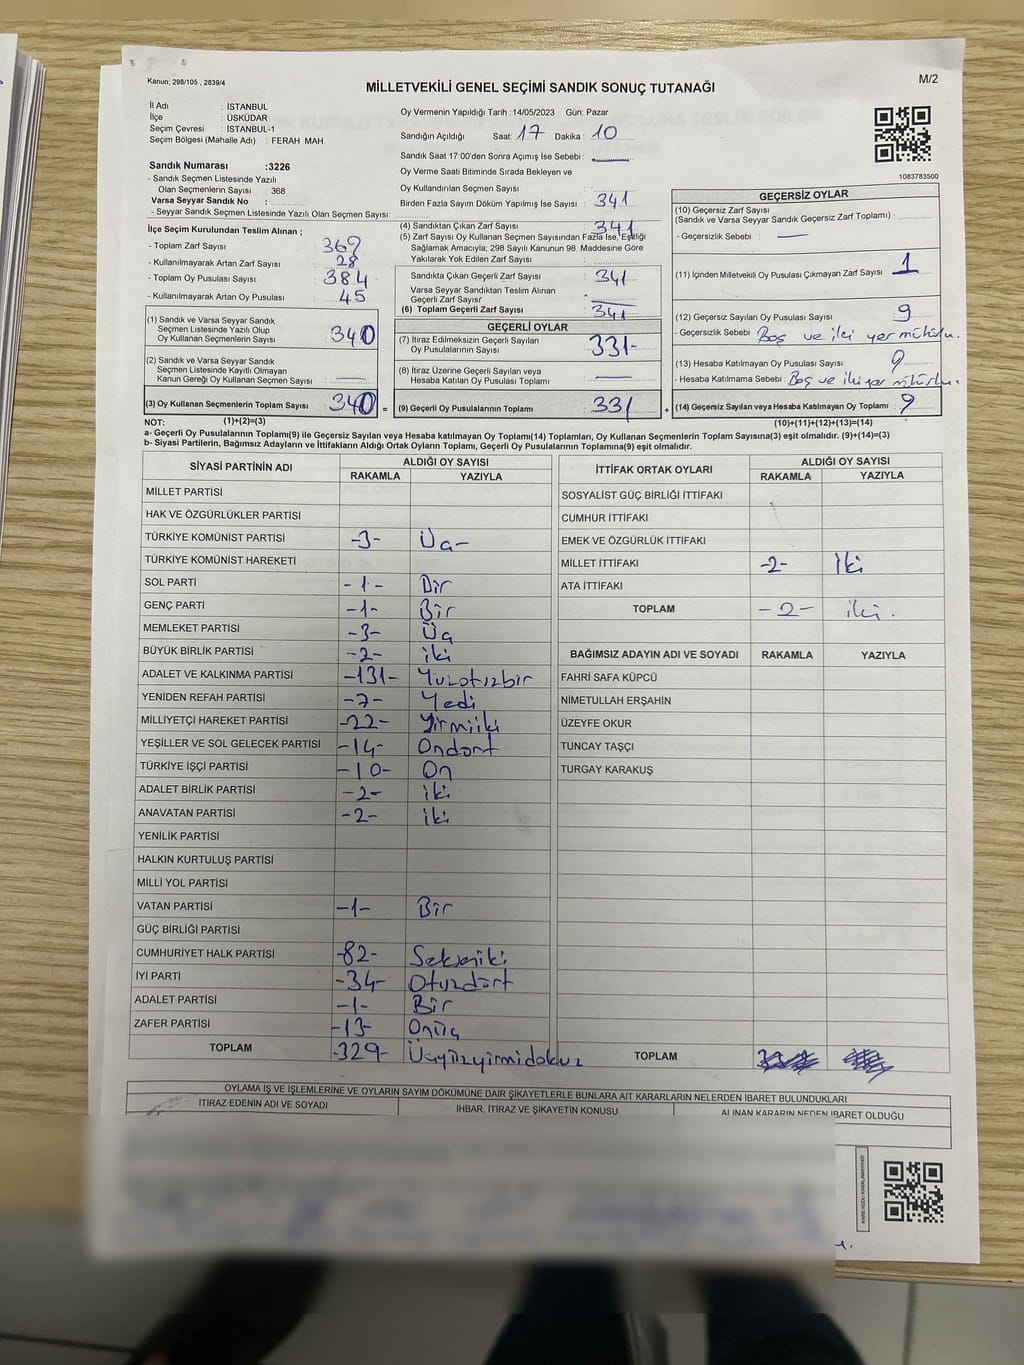 Kanun; 298/105 , 2839/4
MİLLETVEKİLİ GENEL SEÇİMİ SANDIK SONUÇ TUTANAĞI
M/2
İl Adı : İSTANBUL
İlçe : ÜSKÜDAR
Seçim Çevresi : İSTANBUL-1
Seçim Bölgesi (Mahalle Adı) : FERAH MAH.
Sandık Numarası :3226
- Sandık Seçmen Listesinde Yazılı
Olan Seçmenlerin Sayısı : 368
Varsa Seyyar Sandık No :
- Seyyar Sandık Seçmen Listesinde Yazılı Olan Seçmen Sayısı:
Oy Vermenin Yapıldığı Tarih : 14/05/2023 Gün: Pazar
Sandığın Açıldığı Saat: 17 Dakika : 10
Sandık Saat 17:00'den Sonra Açımış İse Sebebi :
Oy Verme Saati Bitiminde Sırada Bekleyen ve
Oy Kullandırılan Seçmen Sayısı :
Birden Fazla Sayım Döküm Yapılmış İse Sayısı : 341
1083783500
İlçe Seçim Kurulundan Teslim Alınan ;
- Toplam Zarf Sayısı :
- Kullanılmayarak Artan Zarf Sayısı : 28
- Toplam Oy Pusulası Sayısı : 384
- Kullanılmayarak Artan Oy Pusulası : 45
(1) Sandık ve Varsa Seyyar Sandık
Seçmen Listesinde Yazılı Olup
Oy Kullanan Seçmenlerin Sayısı : 340
(2) Sandık ve Varsa Seyyar Sandık
Seçmen Listesinde Kayıtlı Olmayan
Kanun Gereği Oy Kullanan Seçmen Sayısı :
(3) Oy Kullanan Seçmenlerin Toplam Sayısı : 340
(1)+(2)=(3)
(4) Sandıktan Çıkan Zarf Sayısı : 341
(5) Zarf Sayısı Oy Kullanan Seçmen Sayısından Fazla İse, Eşitliği
Sağlamak Amacıyla; 298 Sayılı Kanunun 98. Maddesine Göre
Yakılarak Yok Edilen Zarf Sayısı :
Sandıkta Çıkan Geçerli Zarf Sayısı : 341
Varsa Seyyar Sandıktan Teslim Alınan
Geçerli Zarf Sayısı
(6) Toplam Geçerli Zarf Sayısı : 341
GEÇERLİ OYLAR
(7) İtiraz Edilmeksizin Geçerli Sayılan
Oy Pusulalarının Sayısı : 331-
(8) İtiraz Üzerine Geçerli Sayılan veya
Hesaba Katılan Oy Pusulası Toplamı :
= (9) Geçerli Oy Pusulalarının Toplamı : 331 +
GEÇERSİZ OYLAR
(10) Geçersiz Zarf Sayısı
(Sandık ve Varsa Seyyar Sandık Geçersiz Zarf Toplamı) :
- Geçersizlik Sebebi :
(11) İçinden Milletvekili Oy Pusulası Çıkmayan Zarf Sayısı : 1
(12) Geçersiz Sayılan Oy Pusulası Sayısı : 9
- Geçersizlik Sebebi : Boş ve iki yer mühürlü.
(13) Hesaba Katılmayan Oy Pusulası Sayısı : 9
- Hesaba Katılmama Sebebi : Boş ve iki yer mühürlü.
(14) Geçersiz Sayılan veya Hesaba Katılmayan Oy Toplamı : 9
(10)+(11)+(12)+(13)=(14)
NOT:
a- Geçerli Oy Pusulalarının Toplamı(9) ile Geçersiz Sayılan veya Hesaba katılmayan Oy Toplamı(14) Toplamları, Oy Kullanan Seçmenlerin Toplam Sayısına(3) eşit olmalıdır. (9)+(14)=(3)
b- Siyasi Partilerin, Bağımsız Adayların ve İttifakların Aldığı Ortak Oyların Toplamı, Geçerli Oy Pusulalarının Toplamına(9) eşit olmalıdır.
SİYASİ PARTİNİN ADI ALDIĞI OY SAYISI
RAKAMLA YAZIYLA
MİLLET PARTİSİ
HAK VE ÖZGÜRLÜKLER PARTİSİ
TÜRKİYE KOMÜNİST PARTİSİ -3- Üç-
TÜRKİYE KOMÜNİST HAREKETİ
SOL PARTİ -1- Bir
GENÇ PARTİ -1- Bir
MEMLEKET PARTİSİ -3- Üç
BÜYÜK BİRLİK PARTİSİ -2- iki
ADALET VE KALKINMA PARTİSİ -131- Yüzotuzbir
YENİDEN REFAH PARTİSİ -7- Yedi
MİLLİYETÇİ HAREKET PARTİSİ -22- Yirmiiki
YEŞİLLER VE SOL GELECEK PARTİSİ -14- Ondört
TÜRKİYE İŞÇİ PARTİSİ -10- On
ADALET BİRLİK PARTİSİ -2- iki
ANAVATAN PARTİSİ -2- iki
YENİLİK PARTİSİ
HALKIN KURTULUŞ PARTİSİ
MİLLİ YOL PARTİSİ
VATAN PARTİSİ -1- Bir
GÜÇ BİRLİĞİ PARTİSİ
CUMHURİYET HALK PARTİSİ -82- Sekseniki
İYİ PARTİ -34- Otuzdört
ADALET PARTİSİ -1- Bir
ZAFER PARTİSİ -13- Onüç
TOPLAM -329- Üçyüzyirmidokuz
İTTİFAK ORTAK OYLARI ALDIĞI OY SAYISI
RAKAMLA YAZIYLA
SOSYALİST GÜÇ BİRLİĞİ İTTİFAKI
CUMHUR İTTİFAKI
EMEK VE ÖZGÜRLÜK İTTİFAKI
MİLLET İTTİFAKI -2- İki
ATA İTTİFAKI
TOPLAM -2- iki.
BAĞIMSIZ ADAYIN ADI VE SOYADI RAKAMLA YAZIYLA
FAHRİ SAFA KÜPCÜ
NİMETULLAH ERŞAHİN
ÜZEYFE OKUR
TUNCAY TAŞÇI
TURGAY KARAKUŞ
TOPLAM
OYLAMA İŞ VE İŞLEMLERİNE VE OYLARIN SAYIM DÖKÜMÜNE DAİR ŞİKAYETLERLE BUNLARA AİT KARARLARIN NELERDEN İBARET BULUNDUKLARI
İTİRAZ EDENİN ADI VE SOYADI İHBAR, İTİRAZ VE ŞİKAYETİN KONUSU ALINAN KARARIN NEDEN İBARET OLDUĞU